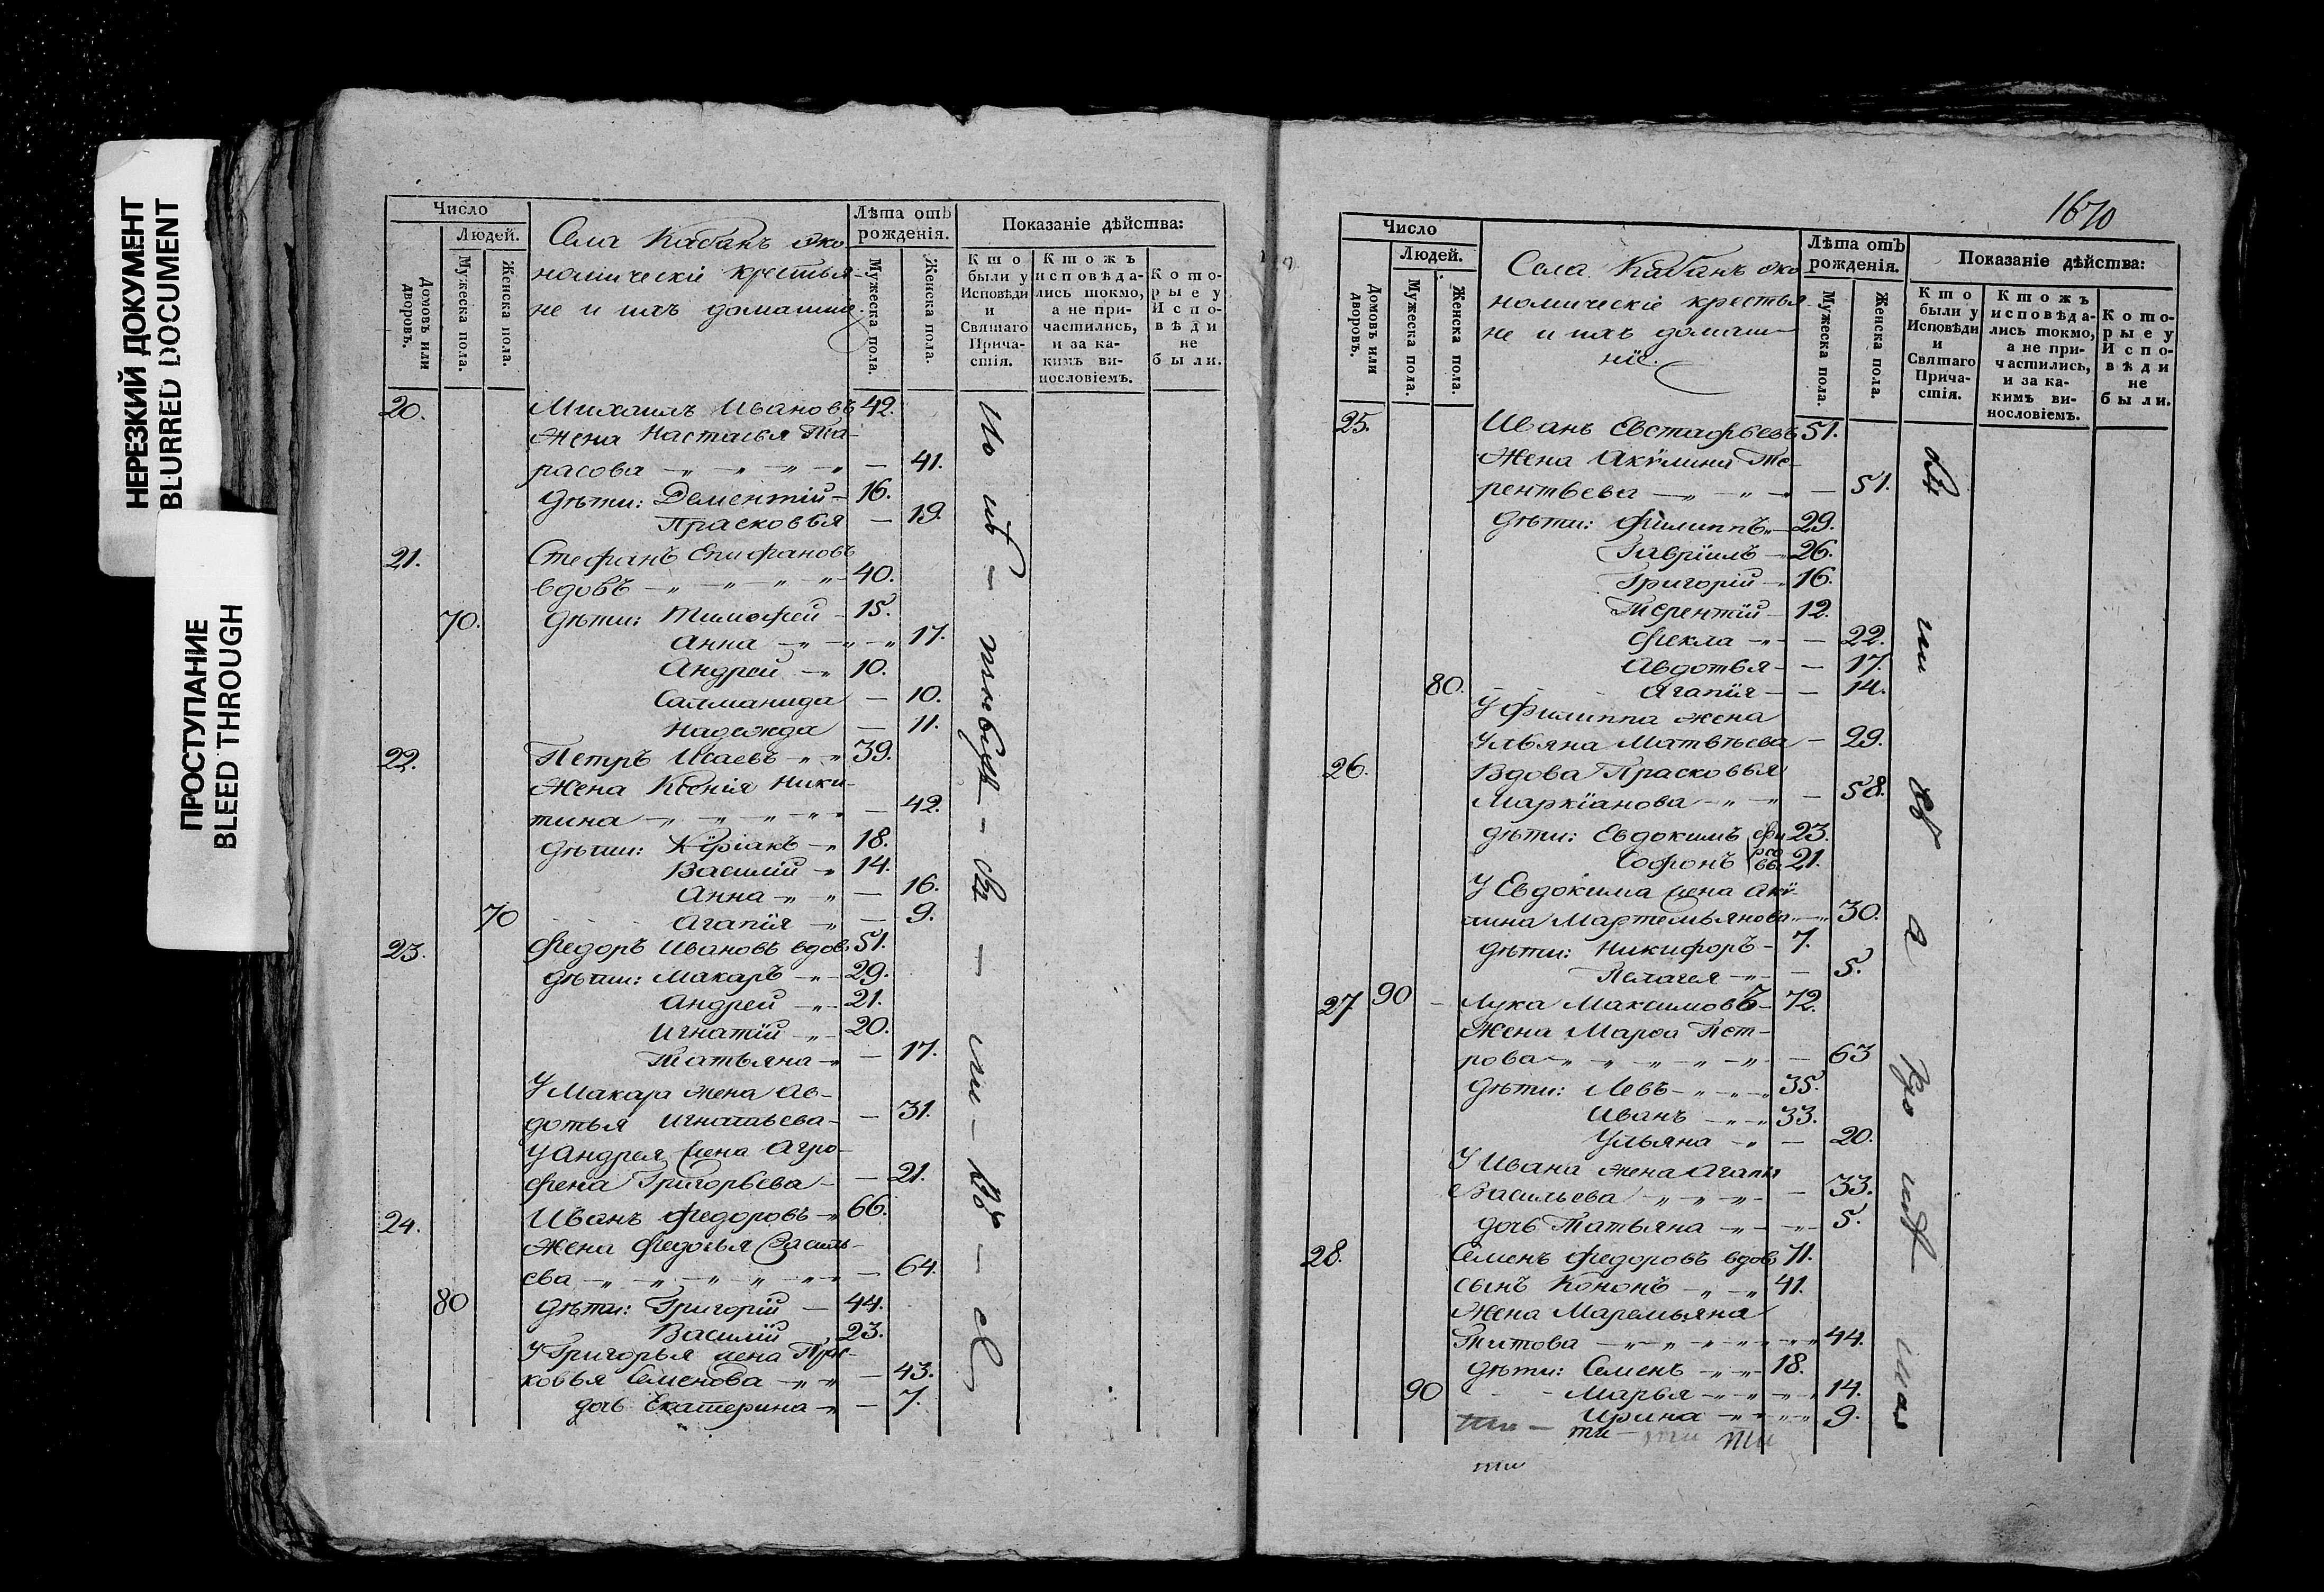 НЕРЕЗКИЙ ДОКУМЕНТ
BLURRED DOCUMENT
ПРОСТУПАНИЕ
BLEED THROUGH
Число
Людей.
Домовъ или дворовъ.
Мужеска пола.
Женска пола.
Села Кабанъ эко-
номическiи крестья-
не и ихъ домашнiе.
Лѣта отъ рожденiя.
Мужеска пола.
Женска пола.
Показанiе дѣйства:
Кто были у Исповѣди и Святаго Прича-стiя.
Ктожъ исповѣда-лись токмо, а не при-частились, и за ка-кимъ ви-нословiемъ.
Кото-рые у Испо-вѣди не были.
20. Михаилъ Ивановъ 42.
Жена Настасья Та-
расова — 41.
Дѣти: Дементiй — 16.
Прасковья — 19.
21. Стефанъ Епифановъ
вдовъ — 40.
70. Дѣти: Тимофей — 15.
Анна — 17.
Андрей — 10.
Саломанида — 10.
Надежда — 11.
22. Петръ Исаевъ — 39.
Жена Ксенiя Ники-
тина — 42.
Дѣти: Кѵрiакъ — 18.
Василiй — 14.
Анна — 16.
70 Агапiя — 9.
23. Федоръ Ивановъ вдов. 51.
Дѣти: Макаръ — 29.
Андрей — 21.
Игнатiй — 20.
Татьяна — 17.
У Макара жена Ав-
дотья Игнатьева — 31.
У Андрея жена Агро-
фена Григорьева — 21.
24. Иванъ Федоровъ — 66.
Жена Федосья Василь-
ева — 64.
80 Дѣти: Григорiй — 44.
Василiй 23.
У Григорья жена Прас-
ковья Семенова — 43.
дочь Екатерина — 7.
1670
Число
Людей.
Домовъ или дворовъ.
Мужеска пола.
Женска пола.
Села Кабанъ эко
номическiе крестья-
не и ихъ домаш-
нiе.
Лѣта отъ рожденiя.
Мужеска пола.
Женска пола.
Показанiе дѣйства:
Кто были у Исповѣди и Святаго Прича-стiя.
Ктожъ исповѣда-лись токмо, а не при-частились, и за ка-кимъ ви-нословiемъ.
Кото-рые у Испо-вѣди не были.
25. Иванъ Евстафьевъ 51.
Жена Акѵлина Те-
рентьева — 51.
Дѣти: Филиппъ — 29.
Гаврiилъ — 26.
Григорiй — 16.
Терентiй — 12.
Фекла — 22.
Авдотья — 17.
80. Агапiя — 14.
У Филиппа жена
Ульяна Матвѣева — 29.
26. Вдова Прасковья
Маркiанова — 58.
Дѣти: Евдокимъ 23.
Софронъ 21.
У Евдокима жена Акѵ-
лина Мартемьянова — 30.
Дѣти: Никифоръ — 7.
Пелагея — 5.
27 90 — Лука Максимовъ — 72.
Жена Марѳа Пет-
рова — 63
Дѣти: Левъ — 35.
Иванъ — 33.
Ульяна — 20.
У Ивана жена Агапiя
Васильева — 33.
дочь Татьяна — 5.
28. Семенъ Федоровъ вдов. 71.
сынъ Кононъ — 41.
Жена Маремьяна
Титова — 44.
Дѣти: Семенъ — 18.
90 Марья — 14.
Ирина — 9.